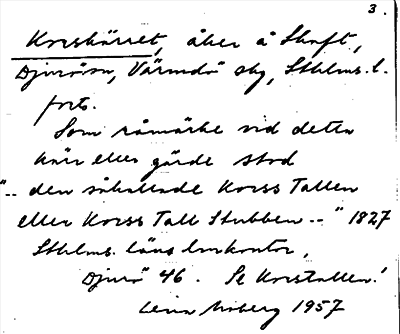 3.
Korskärret, åker å Skaft,
Djurörn, Värmdö skg, Sthlms. l.
forts.
Som råmärke vid detta
kärr eller gärde stod
".. den såkallade Korss Tallen
eller Korss Tall Stubben .." 1827
Sthlms. läns lmkontor,
Djurö 46. Se Korstallen!
Lena Moberg 1957